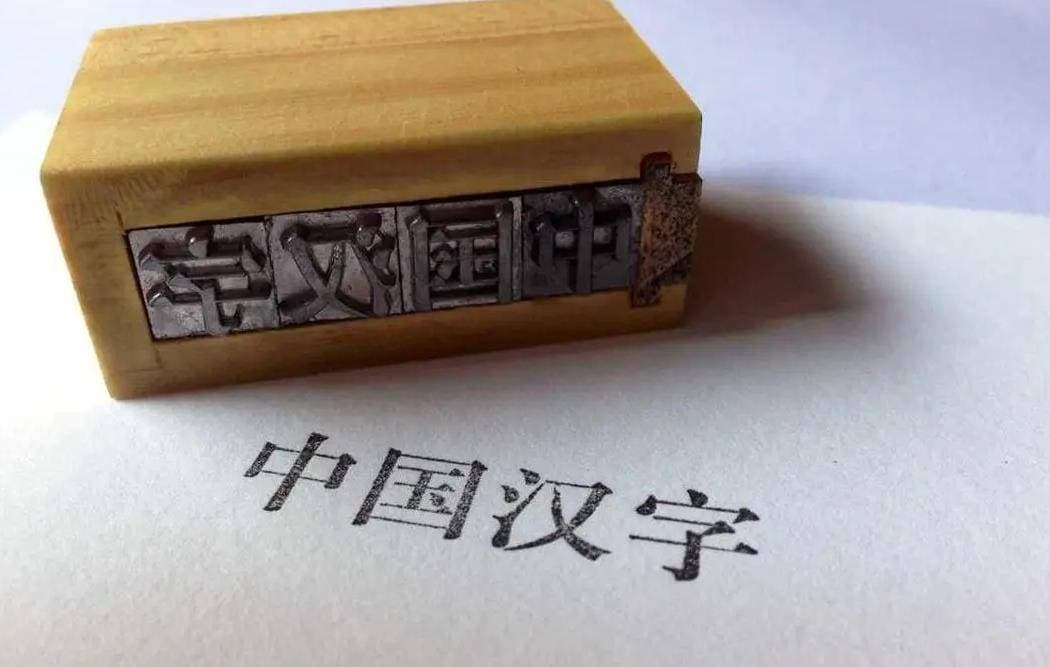 字汉国中
中国汉字